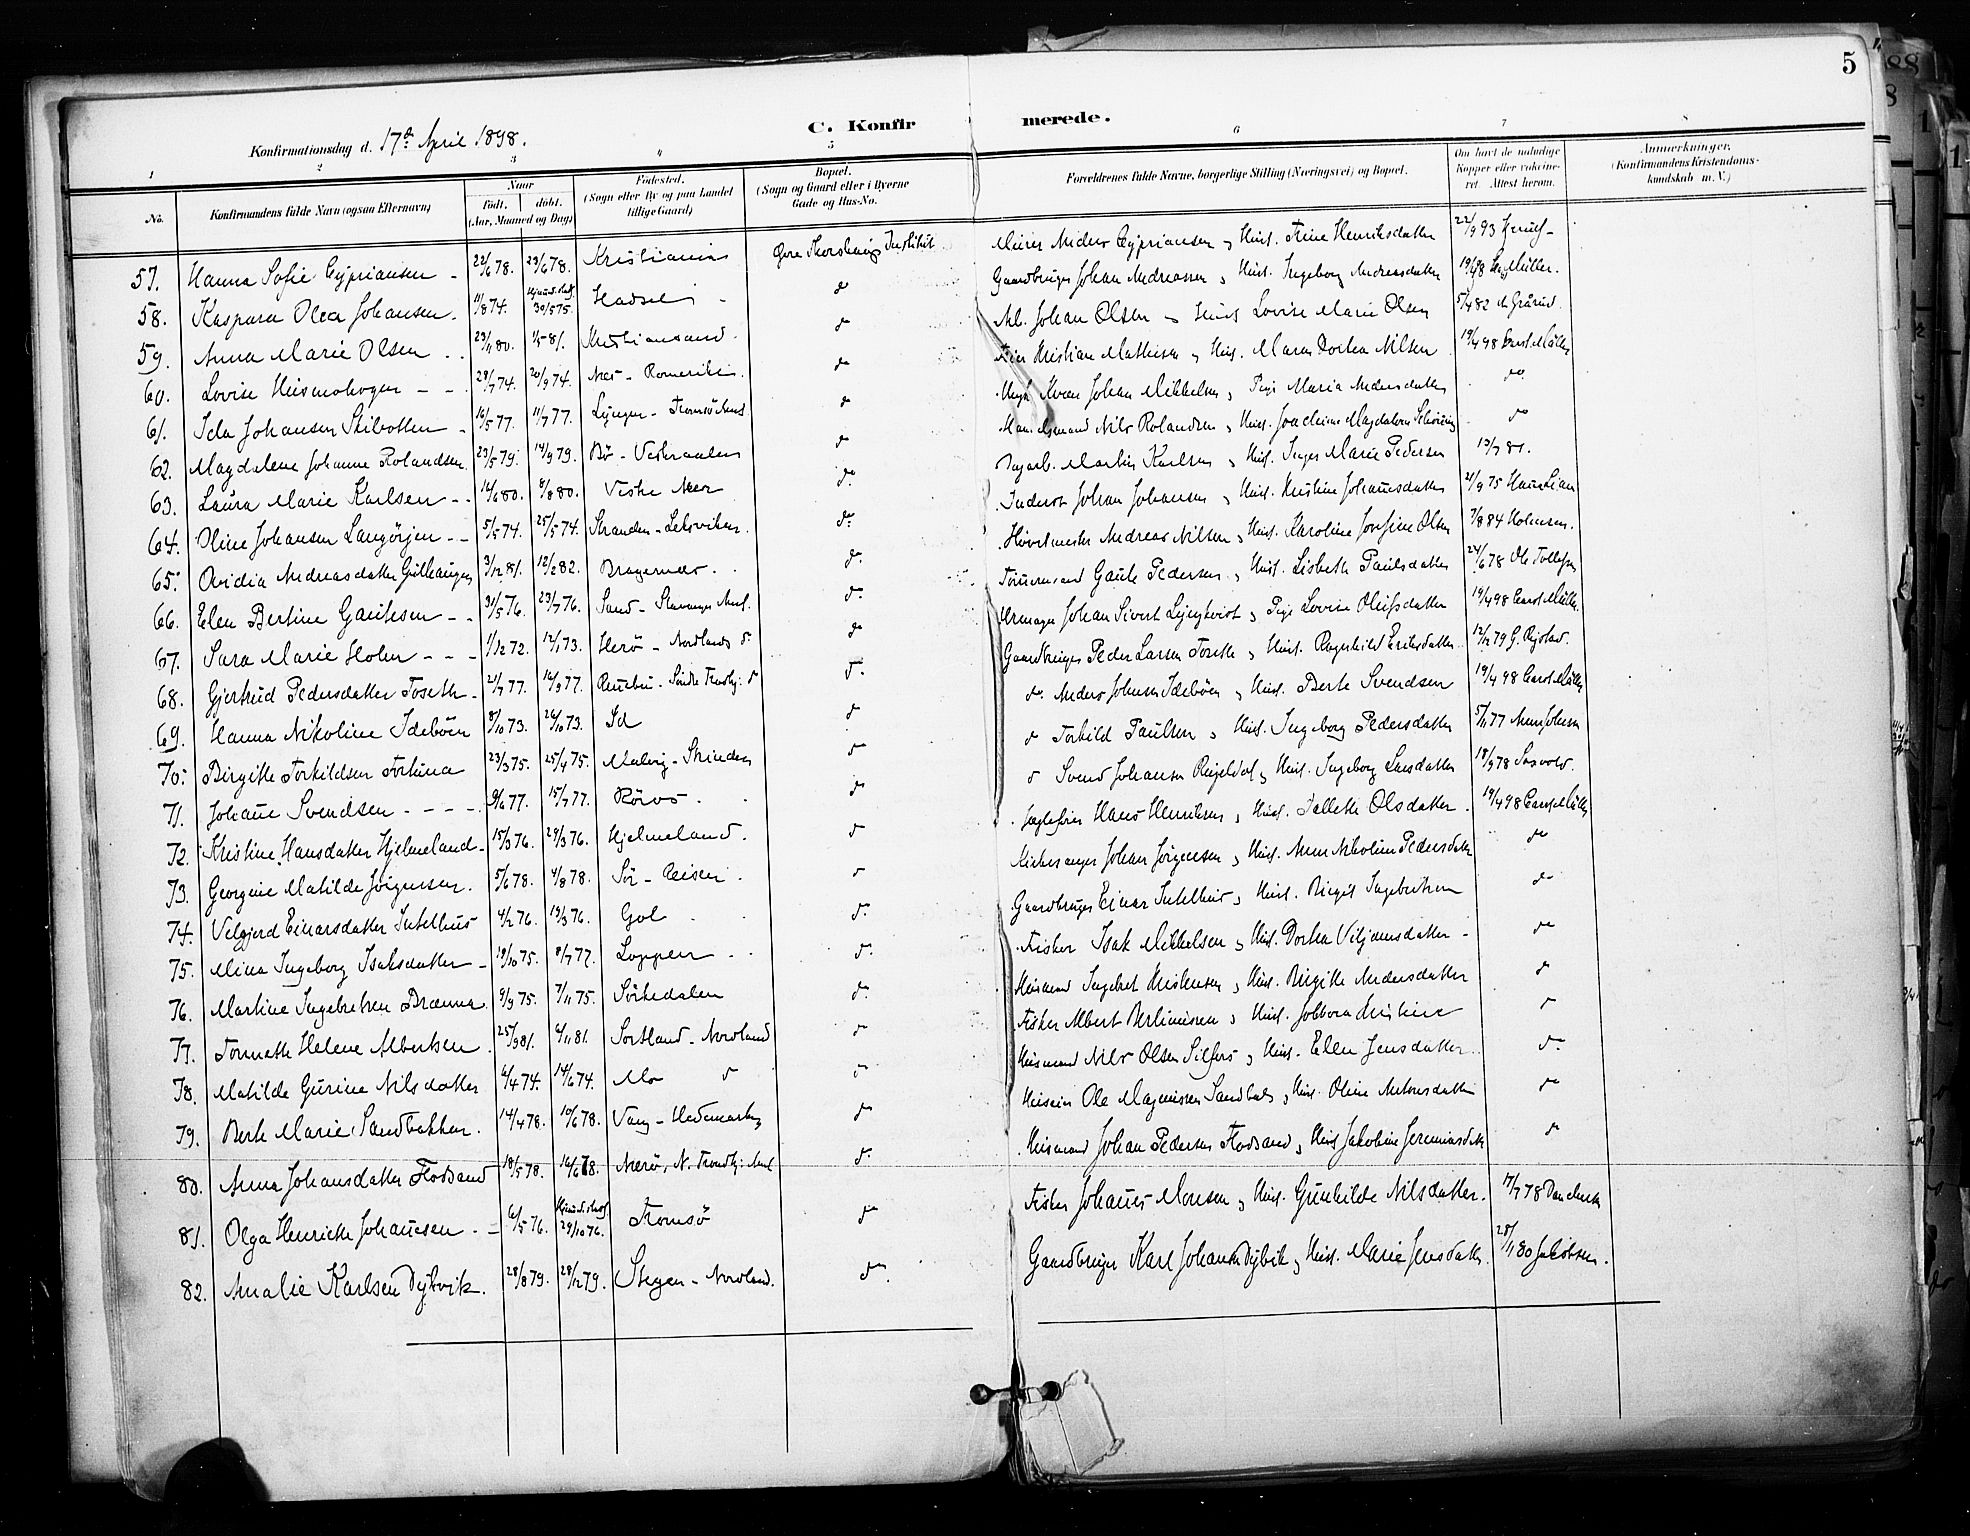 5
C. Konfirmerede.
Konfirmationsdag d. 17de April 1898.
1 2 3 " 5 6 7 8
No. Konfirmandens fulde Navn (ogsaa Efternavn) Naar født. døbt. (Aar, Maaned og Dag) Fødested. (Sogn eller By og paa Landet tillige Gaard) Bopæl. (Sogn og Gaard eller i Byerne Gade og Hus-No. Forældrenes fulde Navne, borgerlige Stilling (Næringsvei) og Bopæl. Om havt de naturlige Kopper eller vaksineret. Attest herom. Anmerkninger. (Konfirmandens Kristendomskundskab m. V.)
57. Hanna Sofie Cypriansen 22/6 78. 23/6 78. Kristiania Institut Anders Cypriansen, Hust. Henriksdatter 22/9 93
58. Kaspara Olea Johansen. 11/8 74. 30/5 75. Hadsel do Gaardbruger Johan Andreassen, Hust. Ingeborg Andreasdatter 19/4 98 Müller.
59. Anna Marie Olsen 23/1 80. 81. Kristiansand. do Arb. Johan Olsen, Hust. Lovise Marie Olsen 5/4 82
60. Lovise 29/7 74. 20/9 74. Næs - Romerike. do Kristian Mathisen, Hust. Maren Dorthea Nilsen 19/4 98 Carst. Müller
61. Ida Johansen Skibotten 16/5 77. 11/7 77. Lyngen - Tromsø Amt do Johan Mikkelsen, Pige Maria Andersdatter do
62. Magdalene Johanne Rolandsen 23/5 79. 14/9 79. Bø - Vesteraalen do Nils Rolandsen, Hust. Magdalena do
63. Laura Marie Karlsen 14/6 80. 8/8 80. Vestre Aker do Dagarb. Martin Karlsen, Hust. Inger Marie Pedersen 13/7 81.
64. Oline Johansen Langørjen 5/5 74. 25/5 74. Stranden - Leksviken. do Inderst Johan Johansen, Hust. Kristine Johannesdatter 21/9 75
65. Ovidia Andreasdatter Gulhaugen 3/12 81. 12/2 82. Bragernæs. do Høvelmester Andreas Nilsen, Hust. Karoline Josefine Olsen 7/8 84 Holmsen.
66. Elen Bertine Gautesen 31/5 76. 23/7 76. Sand - Stavanger Amt. do Gaute Pedersen, Hust. Lisbeth Paulsdatter 24/6 78 Ole Tollefsen
67. Sara Marie Holm 1/12 72. 12/1 73. Herø - Nordlands do do Urmager Johan Sivert Ljungkvist, Pige Lovise Olufsdatter 19/4 98 Carst. Müller.
68. Gjertrud Pedersdatter Toseth 21/7 77. 16/9 77. Rennebu - Søndre Trondhj. do do Gaardbruger Peder Larsen Toseth, Hust. Ragnhild Eriksdatter 12/12 79 G. Rigstad.
69. Hanna Nikoline Idebøen 8/10 73. 26/10 73. Id do do Anders Johnsen Idebøen, Hust. Berte Svendsen 19/4 98 Carst. Müller
70. Birgitte Torkildsen Fortuna 23/3 75. 25/4 75. Malvig - Strinden do do Torkild Paulsen, Hust. Ingeborg Pedersdatter 5/11 77
71. Johane Svendsen 9/6 77. 15/7 77. Røros. do do Svend Johansen, Hust. Ingeborg Larsdatter 18/9 78
72. Kristine Hansdatter Hjelmeland 15/3 76. 29/3 76. Hjelmeland. do Hans Henriksen, Hust. Olsdatter 19/4 98 Carst. Müller
73. Georgine Matilde Jørgensen. 5/6 78. 4/8 78. Sør-Reisen. do Kirkesanger Johan Jørgensen, Hust. Anne Nikoline Pedersdatter do
74. Velgjerd Einarsdatter Intelhus 4/2 76. 19/3 76. Gol do Gaardbruger Einar Intelhus, Hust. Birgit Ingebretsen do
75. Mina Ingeborg Isaksdatter 19/10 75. 8/7 77. Loppen do Fisker Isak Mikkelsen, Hust. Dorthea Viljamsdatter do
76. Martine Ingebretsen Brænna 9/9 75. 7/11 75. Sørkedalen do Husmand Ingebret Kristensen, Hust. Birgitte Andersdatter do
77. Tonnette Helene Albertsen 25/9 81. 4/11 81. Sortland - Nordland do Fisker Albert, Hust. do
78. Matilde Gurine Nilsdatter 6/4 74. 14/6 74. Mo do do Husmand Nils Olsen Silfors, Hust. Ellen Jensdatter do
79. Berte Marie Sandbakken. 14/4 78. 10/6 78. Vang - Hedemarken do Ole Magnussen Sandbak, Hust. Oline Antonsdatter do
80. Anna Johansdatter Flosand 18/5 78. 16/6 78. Nærø, N. Trondhj. Amt do Husmand Johan Pedersen Flosand, Hust. Jakobine Jeremiasdatter do
81. Olga Henriette Johannesen 6/5 76. 29/10 76. Tromsø do Fisker Johannes Monsen, Hust. Gunhilde Nilsdatter. 17/7 78
82. Amalie Karlsen Dybvik. 28/8 79. 28/12 79. Stegen - Nordland. do Gaardbruger Karl Johansen Dybvik, Hust. Marie Jensdatter. 28/11 80 Jakobsen.